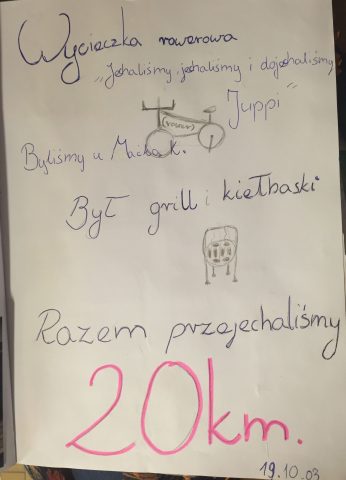 Wycieczka rowerowa
"Jechaliśmy, jechaliśmy i dojechaliśmy
Juppi"
(rower)
Byliśmy u Maćka K.
Był grill i kiełbaski
Razem przejechaliśmy
20km.
19.10.03